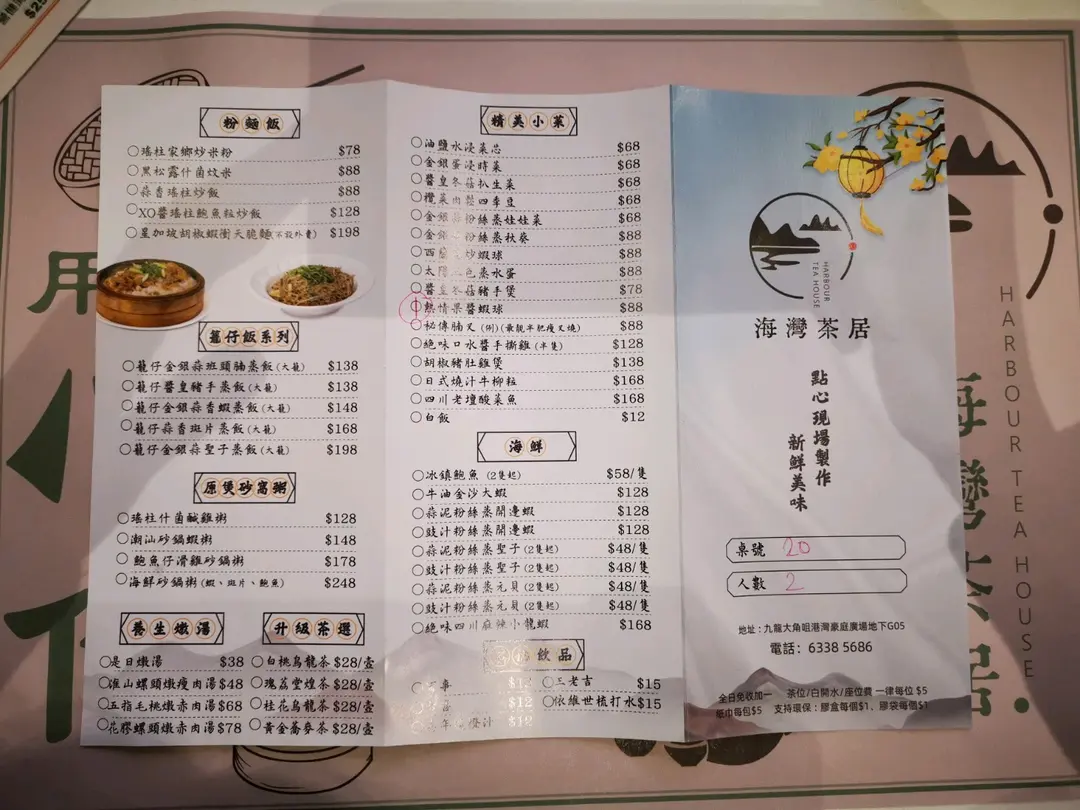 粉麵飯
瑤柱家鄉炒米粉 $78
黑松露什菌炆米 $88
蒜香瑤柱炒飯 $88
XO醬瑤柱鮑魚粒炒飯 $128
星加坡胡椒蝦衝天脆麵(不設外賣) $198
籠仔飯系列
籠仔金銀蒜班頭腩蒸飯(大籠) $138
籠仔醬皇豬手蒸飯(大籠) $138
籠仔金銀蒜香蝦蒸飯(大籠) $148
籠仔蒜香斑片蒸飯(大籠) $168
籠仔金銀蒜聖子蒸飯(大籠) $198
原煲砂窩粥
瑤柱什菌鹹雞粥 $128
潮汕砂鍋蝦粥 $148
鮑魚仔滑雞砂鍋粥 $178
海鮮砂鍋粥(蝦、斑片、鮑魚) $248
養生燉湯
是日燉湯 $38
淮山螺頭燉瘦肉湯 $48
五指毛桃燉赤肉湯 $68
花膠螺頭燉赤肉湯 $78
升級茶選
白桃烏龍茶 $28/壺
瑰荔堂煌茶 $28/壺
桂花烏龍茶 $28/壺
黃金蕎麥茶 $28/壺
精美小菜
油鹽水浸菜芯 $68
金銀蛋浸時菜 $68
醬皇冬菇扒生菜 $68
欖菜肉鬆四季豆 $68
金銀蒜粉絲蒸娃娃菜 $68
金銀 粉絲蒸秋葵 $88
西 炒蝦球 $88
太陽 色蒸水蛋 $88
醬皇冬菇豬手煲 $78
熱情果醬蝦球 $88
秘傳腩叉(例)(最靚半肥瘦叉燒) $88
絕味口水醬手撕雞(半隻) $128
胡椒豬肚雞煲 $138
日式燒汁牛柳粒 $168
四川老壇酸菜魚 $168
白飯 $12
海鮮
冰鎮鮑魚(2隻起) $58/隻
牛油金沙大蝦 $128
蒜泥粉絲蒸開邊蝦 $128
豉汁粉絲蒸開邊蝦 $128
蒜泥粉絲蒸聖子(2隻起) $48/隻
豉汁粉絲蒸聖子(2隻起) $48/隻
蒜泥粉絲蒸元貝(2隻起) $48/隻
豉汁粉絲蒸元貝(2隻起) $48/隻
絕味四川麻辣小龍蝦 $168
飲品
$12
$12
橙汁 $12
王老吉 $15
依維世梳打水 $15
HARBOUR
TEA HOUSE
海灣茶居
點心現場製作
新鮮美味
桌號 20
人數 2
地址:九龍大角咀港灣豪庭廣場地下G05
電話:6338 5686
全日免收加一 茶位/白開水/座位費 一律每位 $5
紙巾每包$5 支持環保:膠盒每個$1、膠袋每個$1
用
HARBOUR TEA HOUSE
海灣茶居